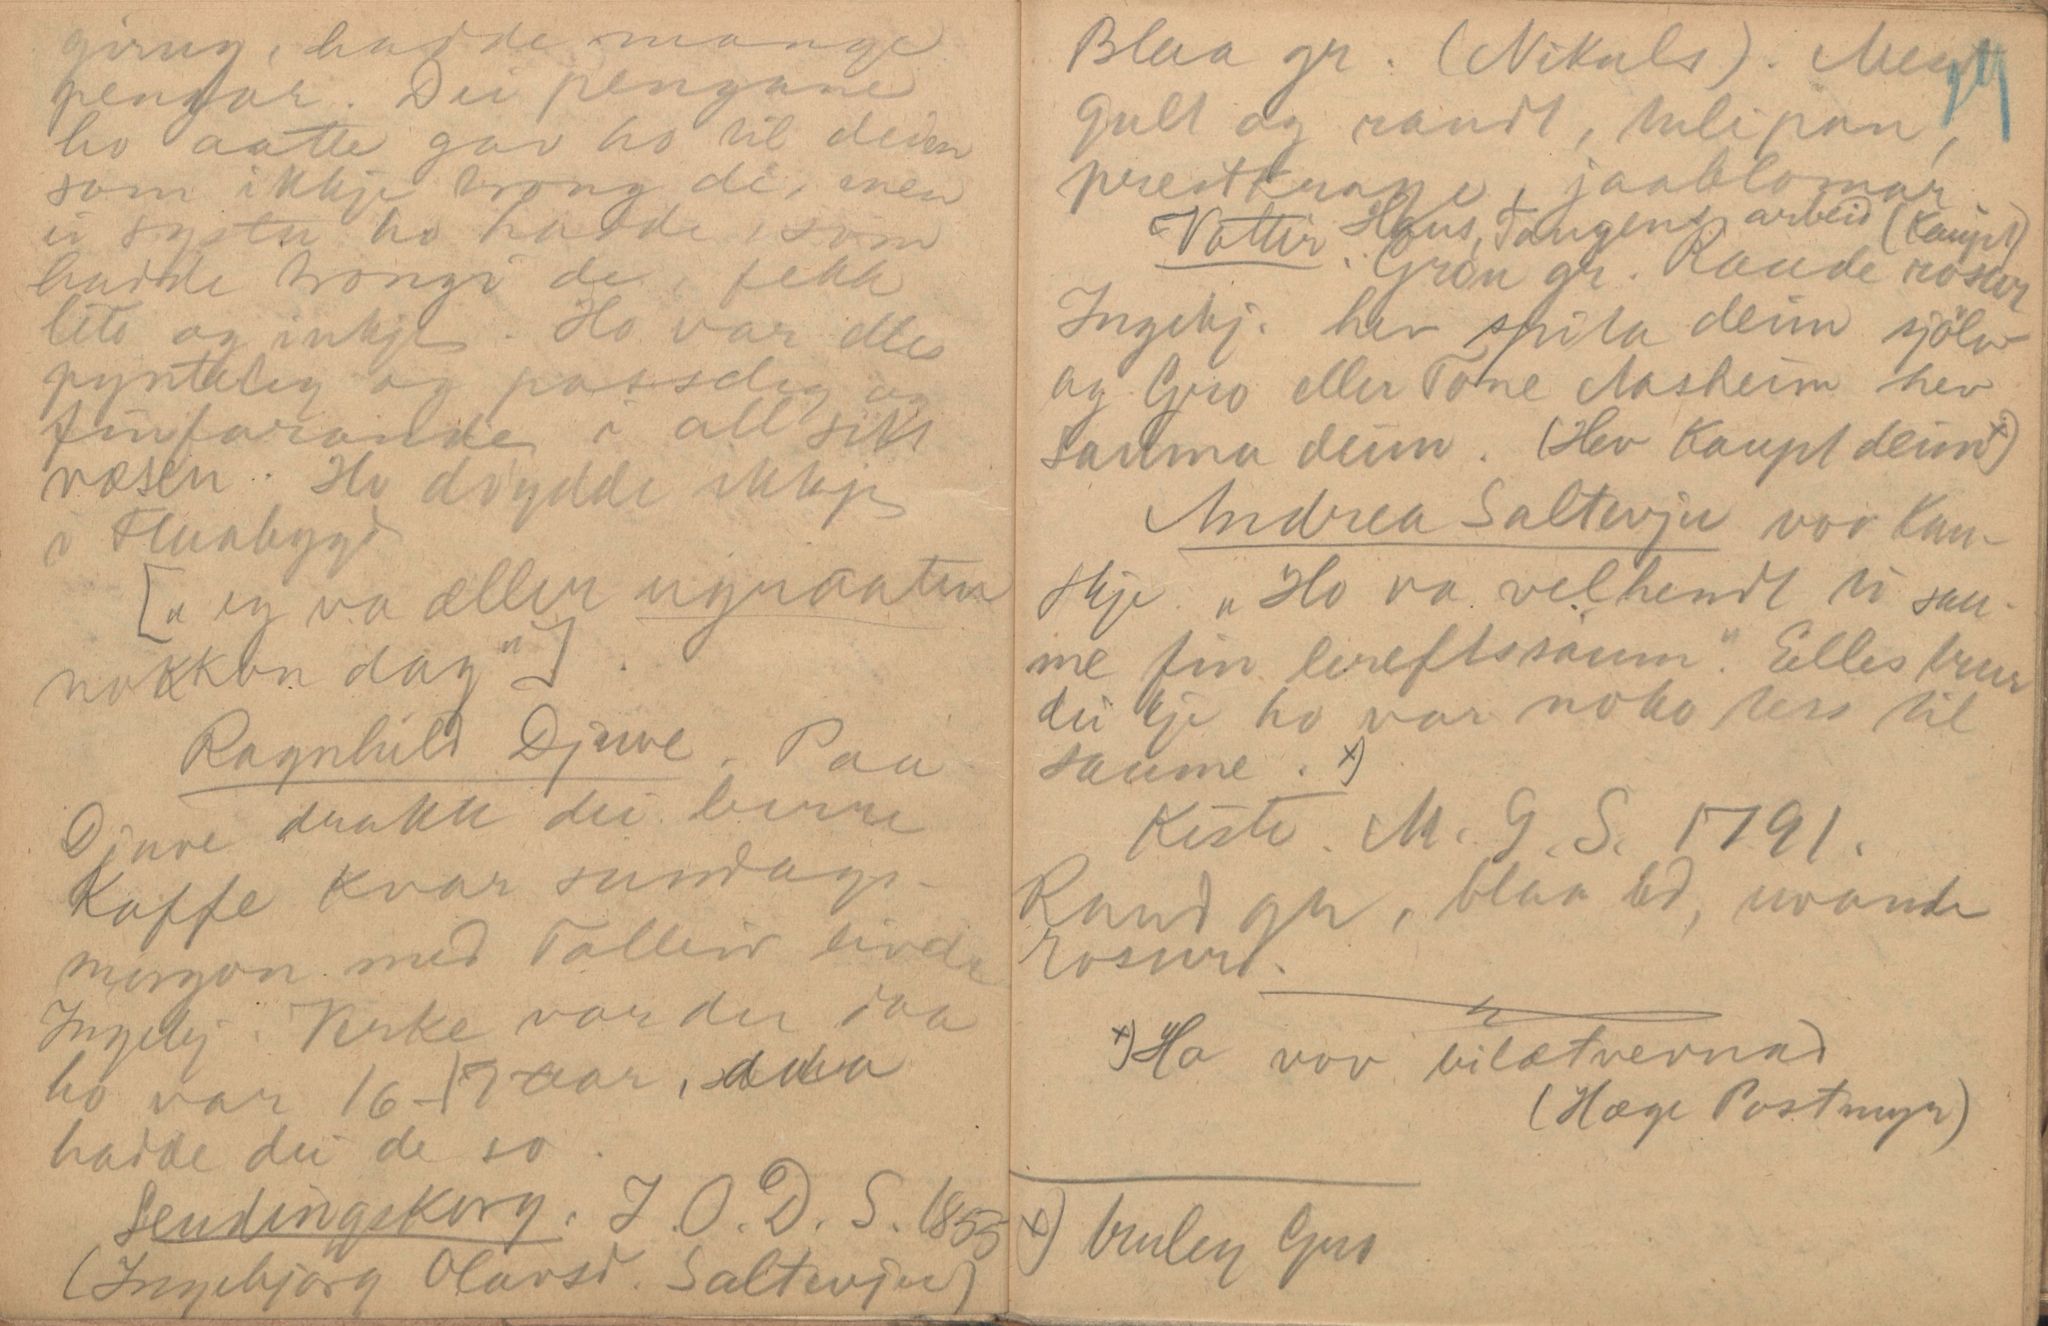 girug, hadde mange
pengar. Dei pengane
ho aatte gav ho til deim
som ikkje trong de, men
ei syster ho hadde, som
hadde trongi de, fekk
lite og inkje. Ho var elles
pynteleg og passeleg og
finfarande i all sikt
væsen. Ho døydde ikkje
i Flaabygd
[„eg va æller ugraaten
nokkon dag"].
Ragnhild Djuve. Paa
Djuve drakk dei berre
Kaffe kvar sundags-
morgon med Tolleiv livde
Ingebj. Kyrke var der daa
ho var 16-17 aar, daa
hadde dei de so.
Sendingskorg. I. O. D. S. 1855
(Ingebjørg Olavsd. Saltevju)
Blaa gr. (Nikuls). Mest
gult og raudt, tulipan,
prestkrage, jaablomar
Vottir. Hans Tangens arbeid (Kaupt)
Grøn gr. Raude rosur
Ingebj. hev spita deim sjølv
og Gro eller Tone Aasheim hev
sauma deim. (Hev Kaupt deim x)
Andrea Saltevju vov kan-
skje. „Ho va velhendt ti sau-
me fin lereftssaum". Elles trur
dei kje ho var noko vers til
saume. x)
Kiste. M. G. S. 1791.
Raud gr, blaa ed, uvande
rosur.
x) Ho vov bilætvevnad
(Hæge Postmyr)
x) truleg Gro